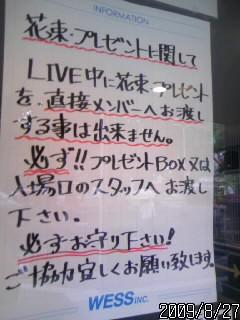 INFORMATION
花束・プレゼントに関して
LIVE中に花束・プレゼント
を、直接メンバーへお渡し
する事は出来ません。
必ず!!プレゼントBOX又は
入場口のスタッフへお渡し
下さい。
必ずお守り下さい!
ご協力宜しくお願い致します。
WESS INC.
2009/8/27